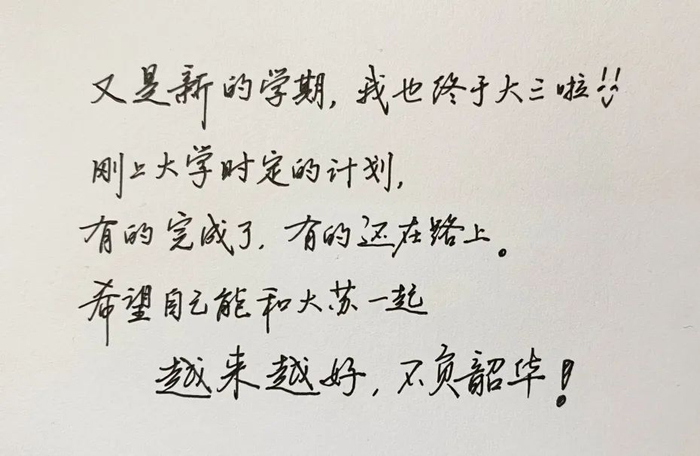 又是新的学期,我也终于大三啦!!
刚上大学时定的计划,
有的完成了,有的还在路上。
希望自己能和大苏一起
越来越好,不负韶华!